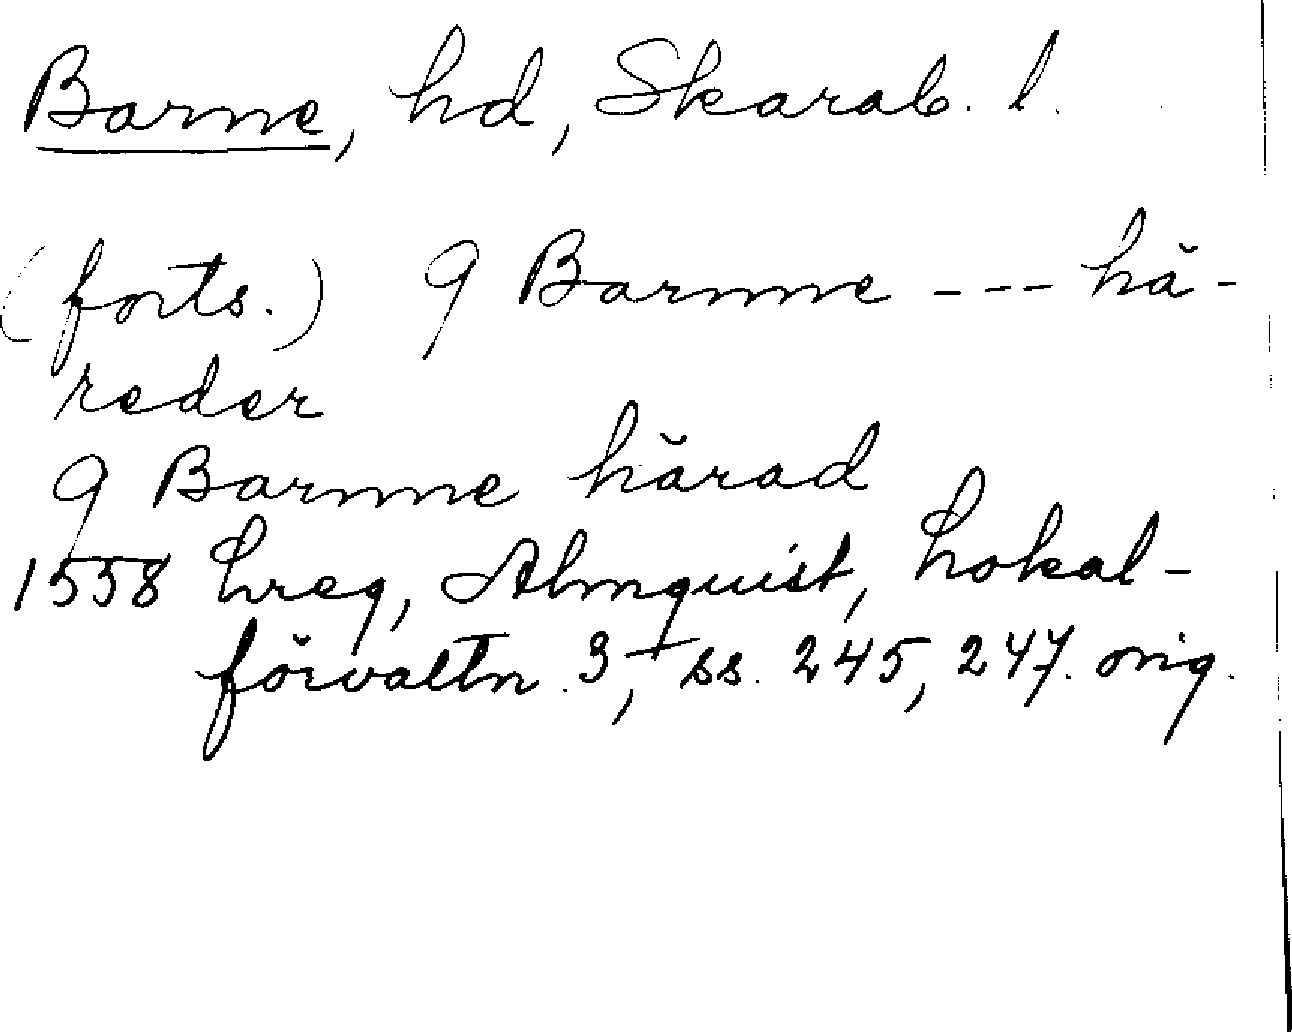 Barne, hd, Skarab. l.
(forts.) q Barnne --- hä-
reder
q Barnne härad
1558 hreg, Almquist, Lokal-
förvaltn. 3, ss. 245, 247. orig.